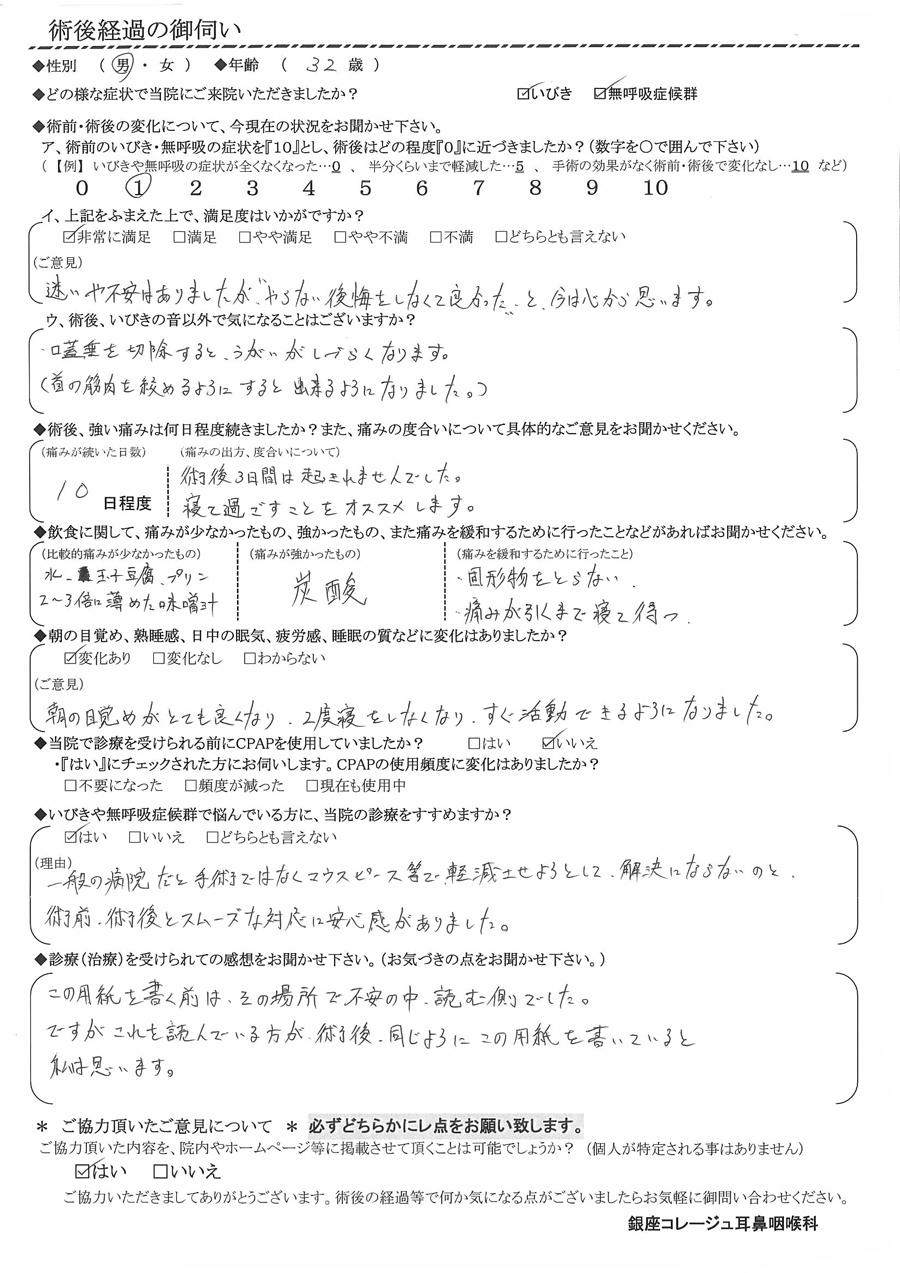 術後経過の御伺い
◆性別　（ 男 ・ 女 ）　◆年齢　（　32 歳 ）
◆どの様な症状で当院にご来院いただきましたか？　☑いびき　☑無呼吸症候群
◆術前・術後の変化について、今現在の状況をお聞かせ下さい。
ア、術前のいびき・無呼吸の症状を『10』とし、術後はどの程度『0』に近づきましたか？（数字を○で囲んで下さい）
（【例】いびきや無呼吸の症状が全くなくなった…0　、　半分くらいまで軽減した…5　、　手術の効果がなく術前・術後で変化なし…10　など）
0　1　2　3　4　5　6　7　8　9　10
イ、上記をふまえた上で、満足度はいかがですか？
☑非常に満足　□満足　□やや満足　□やや不満　□不満　□どちらとも言えない
（ご意見）
迷いや不安はありましたが、“やらない後悔をしなくて良かった”と、今は心から思います。
ウ、術後、いびきの音以外で気になることはございますか？
・口蓋垂を切除すると、うがいがしづらくなります。
（首の筋肉を絞めるようにすると出来るようになりました。）
◆術後、強い痛みは何日程度続きましたか？また、痛みの度合いについて具体的なご意見をお聞かせください。
（痛みが続いた日数）　（痛みの出方、度合いについて）
術後3日間は起きれませんでした。
10 日程度　寝て過ごすことをオススメします。
◆飲食に関して、痛みが少なかったもの、強かったもの、また痛みを緩和するために行ったことなどがあればお聞かせください。
（比較的痛みが少なかったもの）　（痛みが強かったもの）　（痛みを緩和するために行ったこと）
水、玉子豆腐、プリン　炭酸　・固形物をとらない、
2〜3倍に薄めた味噌汁　・痛みが引くまで寝て待つ、
◆朝の目覚め、熟睡感、日中の眠気、疲労感、睡眠の質などに変化はありましたか？
☑変化あり　□変化なし　□わからない
（ご意見）
朝の目覚めがとても良くなり、2度寝をしなくなり、すぐ活動できるようになりました。
◆当院で診療を受けられる前にCPAPを使用していましたか？　□はい　☑いいえ
・『はい』にチェックされた方にお伺いします。CPAPの使用頻度に変化はありましたか？
□不要になった　□頻度が減った　□現在も使用中
◆いびきや無呼吸症候群で悩んでいる方に、当院の診療をすすめますか？
☑はい　□いいえ　□どちらとも言えない
（理由）
一般の病院だと手術ではなくマウスピース等で軽減させようとして、解決にならないのと、
術前、術後とスムーズな対応に安心感がありました。
◆診療（治療）を受けられての感想をお聞かせ下さい。（お気づきの点をお聞かせ下さい。）
この用紙を書く前は、その場所で不安の中、読む側でした。
ですがこれを読んでいる方が、術後、同じようにこの用紙を書いていると
私は思います。
＊　ご協力頂いたご意見について　＊　必ずどちらかにレ点をお願い致します。
ご協力頂いた内容を、院内やホームページ等に掲載させて頂くことは可能でしょうか？（個人が特定される事はありません）
☑はい　□いいえ
ご協力いただきましてありがとうございます。術後の経過等で何か気になる点がございましたらお気軽に御問い合わせください。
銀座コレージュ耳鼻咽喉科